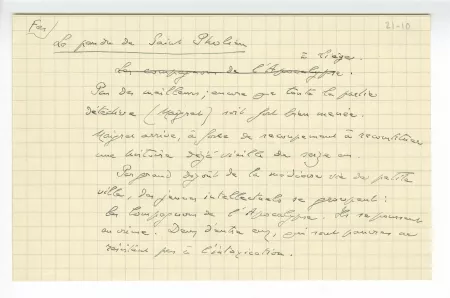 Fay)
21-10
Le pendu de Saint Pholien
à Liège.
Les compagnons de l'Apocalypse.
Pas des meilleurs, encore que toute la partie
détective (Maigret) soit fort bien menée.
Maigret arrive, à force de recoupements à reconstituer
une histoire déjà vieille de seize ans.
Par grand dégoût de la médiocre vie de petite
ville, des jeunes intellectuels se groupent :
les Compagnons de l'Apocalypse. Ils se poussent
au crime. Deux d'entre eux, qui sont pauvres ne
résistent pas à l'intoxication.